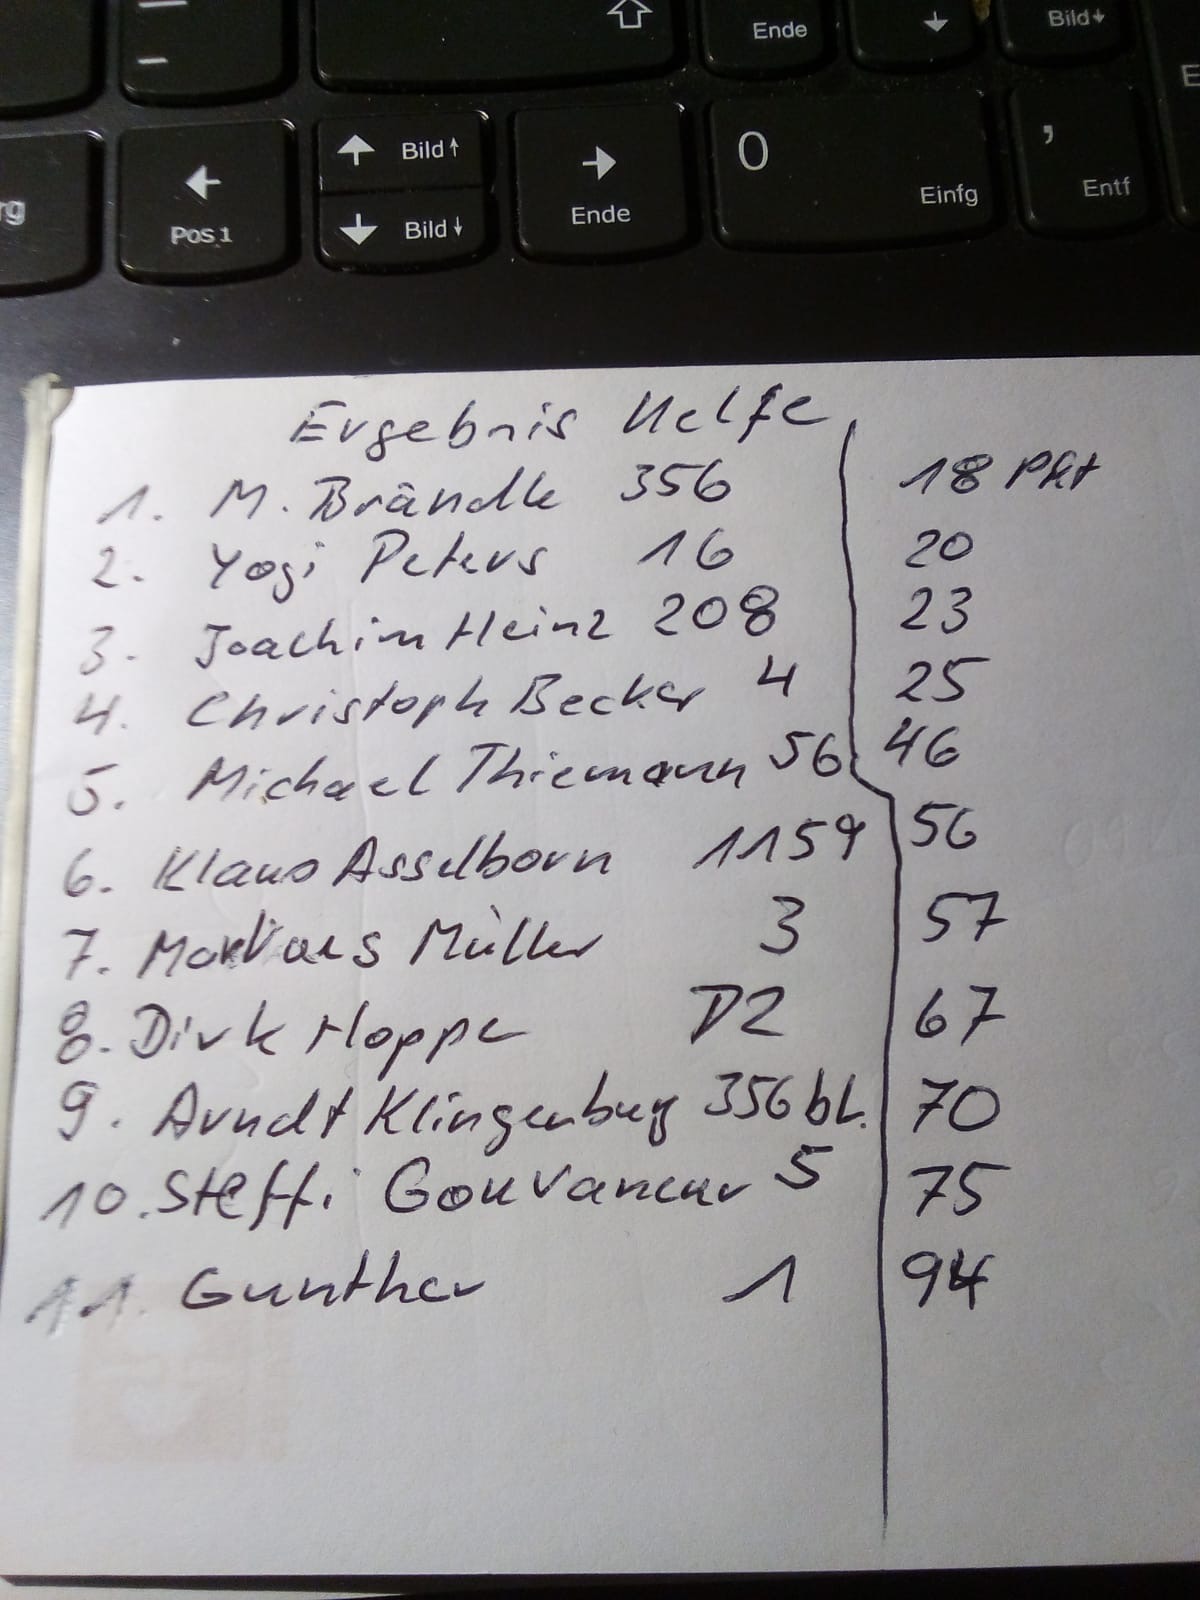 Ende
Bild↓
E
rg
←
Pos 1
↑ Bild↑
↓ Bild↓
→
Ende
0
Einfg
,
Entf
Ergebnis Helfe
1. M. Brändle 356 18 Pkt
2. Yogi Peters 16 20
3. Joachim Heinz 208 23
4. Christoph Becker 4 25
5. Michael Thiemann 56 46
6. Klaus Asselborn 1159 56
7. Markus Müller 3 57
8. Dirk Hoppe D2 67
9. Arndt Klingenburg 356 bl. 70
10. Steffi Gouvaneur 5 75
11. Gunther 1 94